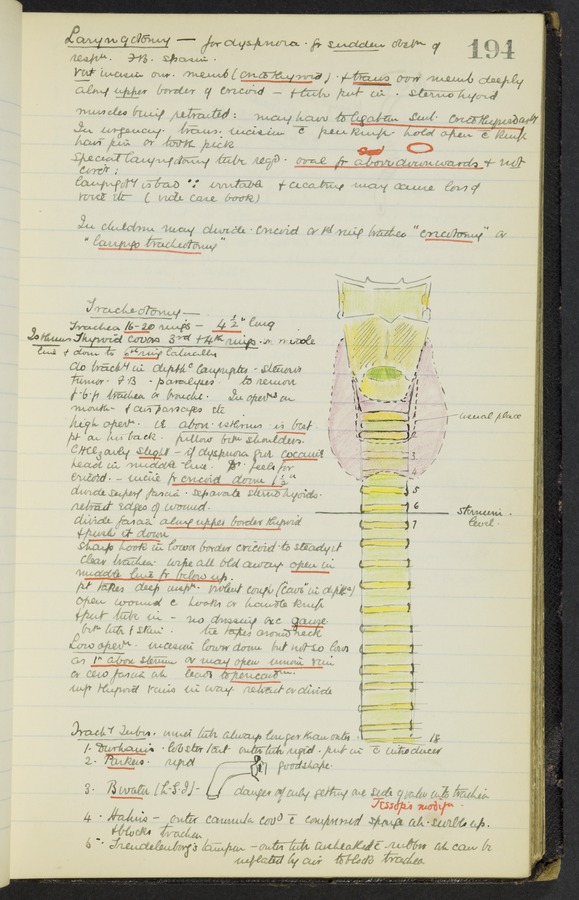 194
Laryngotomy — for dyspnoea. fr sudden obstn of
respn. F.B. spasm.
Vert incision over memb (cricothyroid) + trans over memb deeply
along upper border of cricoid — + tube put in. sternohyoid
muscles being retracted: may have to ligature cricothyroid arty
In urgency. trans. incision c penknife hold open c
hair pin or tooth pick
Special laryngotomy tube reqd. oval fr above downwards + not
circr:
laryngoty is bad ∵ irritable + cicatrix may cause loss of
voice etc (vide case book)
In children may divide cricoid or 1st ring trachea "cricotomy" or
"laryngo tracheotomy"
Tracheotomy —
Trachea 16-20 rings — 4 ½" long
Isthmus Thyroid covers 3rd + 4th rings in middle
line + down to 6th ring laterally
do trachy in diphthc laryngitis. stenosis
tumor. F.B. paralyses. to remove
f.b. fr trachea or bronchi. In opers on
mouth + air passages etc
high opern. is above isthmus. is best
pt on his back. pillow betn shoulders.
CHCl3 only slight — if dyspnoea give cocaine
head in middle line. feels for
cricoid. — incise fr cricoid down 1½"
divide superf fascia. separate sternohyoids.
retract edges of wound.
divide fascia along upper border thyroid
+ push it down
sharp hook in lower border cricoid to steady it
clear trachea. wipe all bld away open in
middle line fr below up.
pt takes deep inspn. violent cough (care in diphth)
open wound c hooks or handle knife
+ put tube in — no dressing exc gauze
betn tube + skin. tie tapes around neck
Low opern. incision lower down but not so low
as 1" above sternum or may open innom vein
or cerv fascia wh leads to pericardm.
inf thyroid veins in way retract or divide
usual place
2
3
4
5
6
7
sternum
level.
18
Trachy Tubes. inner tube always longer than outer
1. Durham's. lobster tail outer tube rigid. put in c introducer
2. Parkers. rigid good shape.
3. Bivalve [L.S.J] — danger of only getting one side of valve into trachea
Jessop's modifn.
4. Hahn's — outer cannula covd c compressed sponge wh. swells up.
+ blocks trachea
5. Trendelenburg's tampon — outer tube c rubber wh can be
inflated by air to block trachea